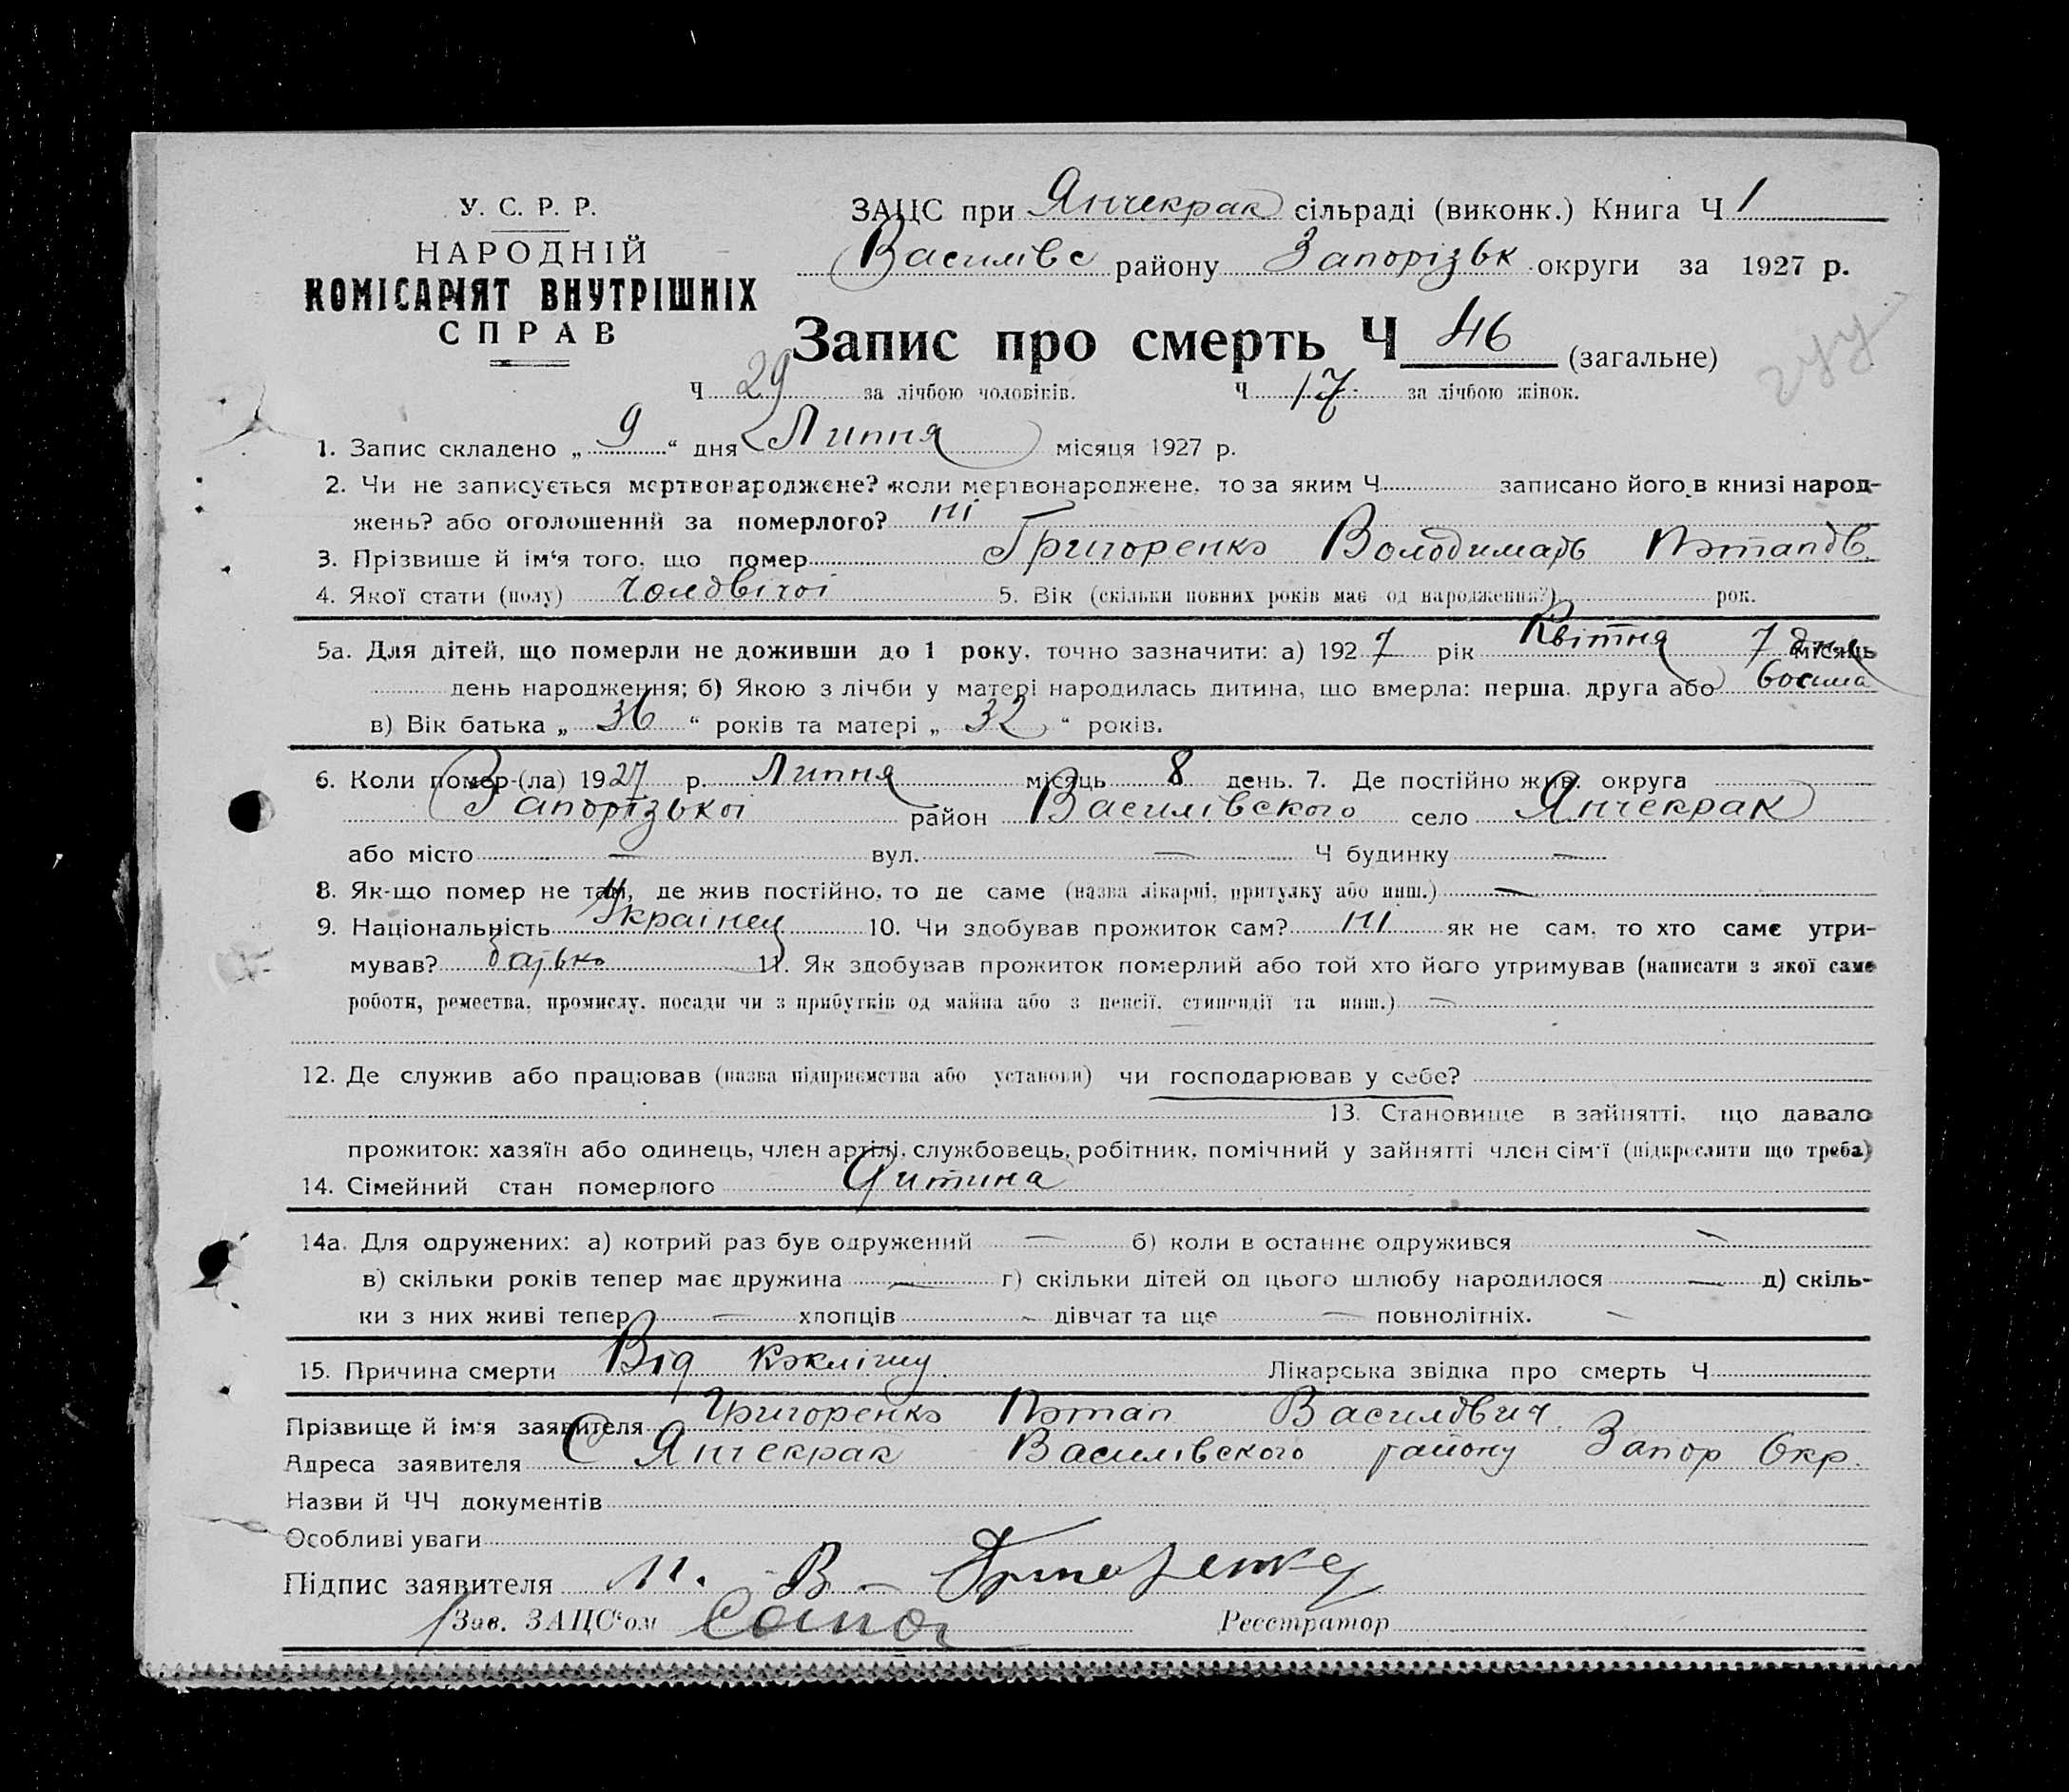 У. С. Р. Р.
НАРОДНІЙ
КОМІСАРІЯТ ВНУТРІШНІХ
СПРАВ
ЗАЦС при Янчекрак сільраді (виконк.) Книга Ч 1
Василівс району Запорізьк округи за 1927 р.
Запис про смерть Ч 46 (загальне)
Ч 29 за лічбою чоловіків. Ч 17 за лічбою жінок.
1. Запис складено „ 9 “ дня Липня місяця 1927 р.
2. Чи не записується мертвонароджене? коли мертвонароджене, то за яким Ч записано його в книзі народ-
жень? або оголошений за померлого? ні
3. Прізвище й ім‘я того, що помер Григоренко Володимарь Потапов.
4. Якої стати (полу) чоловічої 5. Вік (скільки повних років має од народження?) рок.
5а. Для дітей, що померли не доживши до 1 року, точно зазначити: а) 1927 рік Квітня 7 дня місяць
день народження; б) Якою з лічби у матері народилась дитина, що вмерла: перша, друга або восима
в) Вік батька „ 36 “ років та матері „ 32 “ років.
6. Коли помер-(ла) 1927 р. Липня місяць 8 день. 7. Де постійно жив: округа
Запорізької район Василівского село Янчекрак
або місто — вул. — Ч будинку —
8. Як-що помер не там, де жив постійно, то де саме (назва лікарні, притулку або инш.) —
9. Національність Українец 10. Чи здобував прожиток сам? ні як не сам, то хто саме утри-
мував? батько 11. Як здобував прожиток померлий або той хто його утримував (написати з якої саме
роботи, ремества, промислу, посади чи з прибутків од майна або з пенсії, стипендії та инш.) —
12. Де служив або працював (назва підприємства або установи) чи господарював у себе?
13. Становище в зайнятті, що давало
прожиток: хазяїн або одинець, член артілі, службовець, робітник, помічний у зайнятті член сім‘ї (підкреслити що треба)
14. Сімейний стан померлого Дитина
14а. Для одружених: а) котрий раз був одружений — б) коли в останнє одружився —
в) скільки років тепер має дружина — г) скільки дітей од цього шлюбу народилося — д) скіль-
ки з них живі тепер — хлопців — дівчат та ще — повнолітніх. —
15. Причина смерти Від коклішу Лікарська звідка про смерть Ч
Прізвище й ім‘я заявителя Григоренко Потап Василович.
Адреса заявителя С Янчекрак Василівского району Запор Окр.
Назви й ЧЧ документів
Особливі уваги
Підпис заявителя П. В – Григоренко
Зав. ЗАЦС‘ом Реєстратор